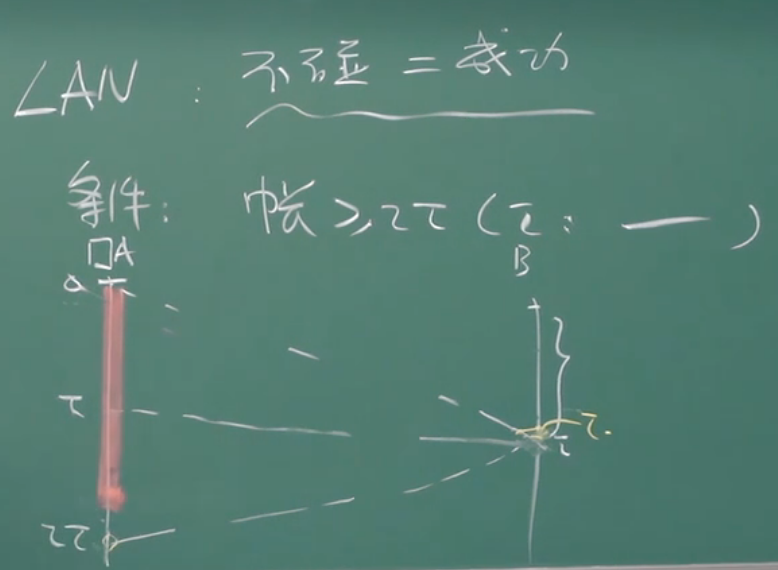 LAN: 不碰 = 成功
条件: 帧长 ≥ 2τ (τ: — )
A
B
0
τ
τ.
τ
2τ